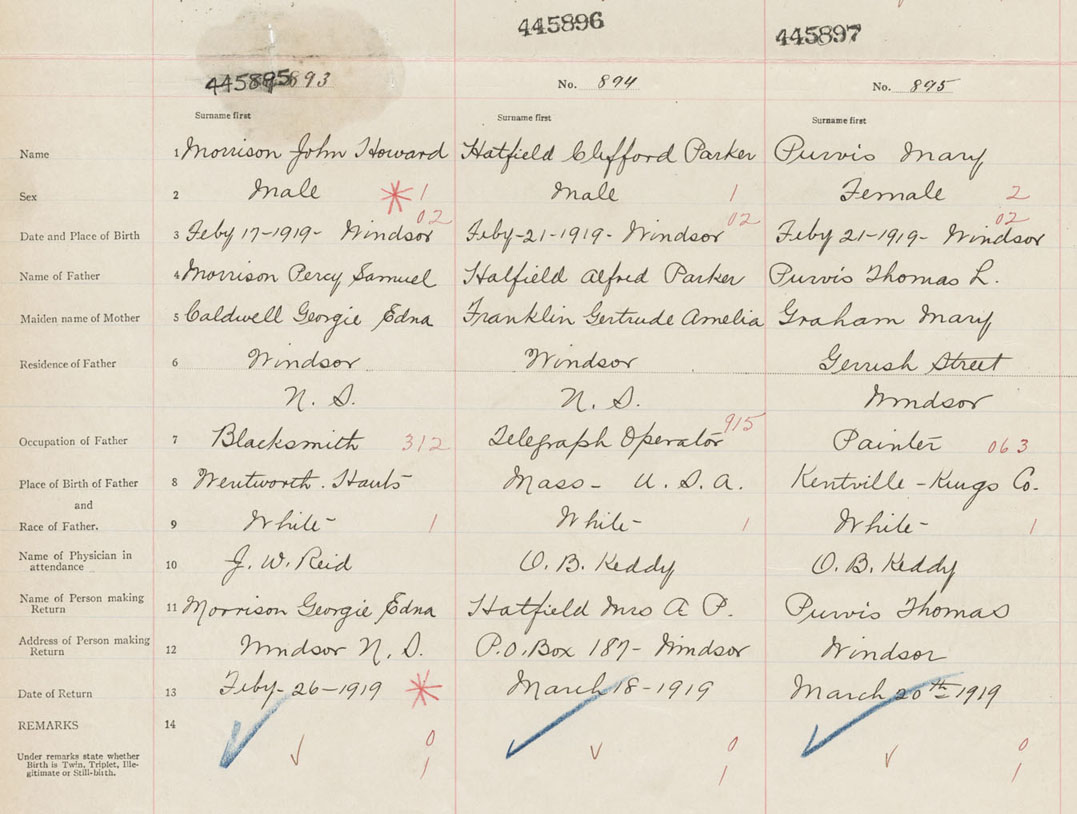 445896
445897
445895 893
No. 894
No. 895
Surname first
Surname first
Surname first
Name 1 Morrison John Howard Hatfield Clifford Parker Purvis Mary
Sex 2 Male * 1 Male 1 Female 2
02 02 02
Date and Place of Birth 3 Feby 17-1919- Windsor Feby-21-1919- Windsor Feby 21-1919- Windsor
Name of Father 4 Morrison Percy Samuel Hatfield Alfred Parker Purvis Thomas L.
Maiden name of Mother 5 Caldwell Georgie Edna Franklin Gertrude Amelia Graham Mary
Residence of Father 6 Windsor Windsor Gerrish Street
N. S. N. S. Windsor
Occupation of Father 7 Blacksmith 312 Telegraph Operator 915 Painter 063
Place of Birth of Father 8 Wentworth. Hants Mass- U. S. A. Kentville - Kings Co.
and
Race of Father. 9 White- 1 White- 1 White- 1
Name of Physician in
attendance 10 J. W. Reid O. B. Keddy O. B. Keddy
Name of Person making
Return 11 Morrison Georgie Edna Hatfield Mrs A P. Purvis Thomas
Address of Person making
Return 12 Windsor N. S. P.O. Box 187- Windsor Windsor
Date of Return 13 Feby- 26-1919 * March 18-1919 March 20th 1919
REMARKS 14
0 0 0
Under remarks state whether
Birth is Twin, Triplet, Ille-
gitimate or Still-birth.
1 1 1